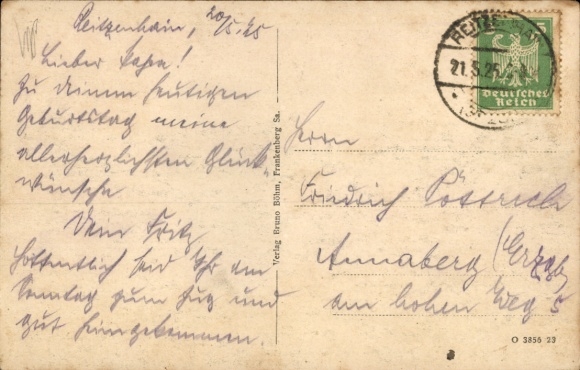 Reitzenhain, 20/5.25
Lieber Papa!
Zu deinem heutigen
Geburtstag meine
allerherzlichsten Glück-
wünsche
Dein Fritz
Hoffentlich seid Ihr am
Sonntag zum Zug und
gut heimgekommen.
Verlag Bruno Böhm, Frankenberg Sa.
21.5.25
5
Deutsches
Reich
Herrn
Friedrich
Annaberg (Erzgb
am hohen Weg 5
O 3856 23